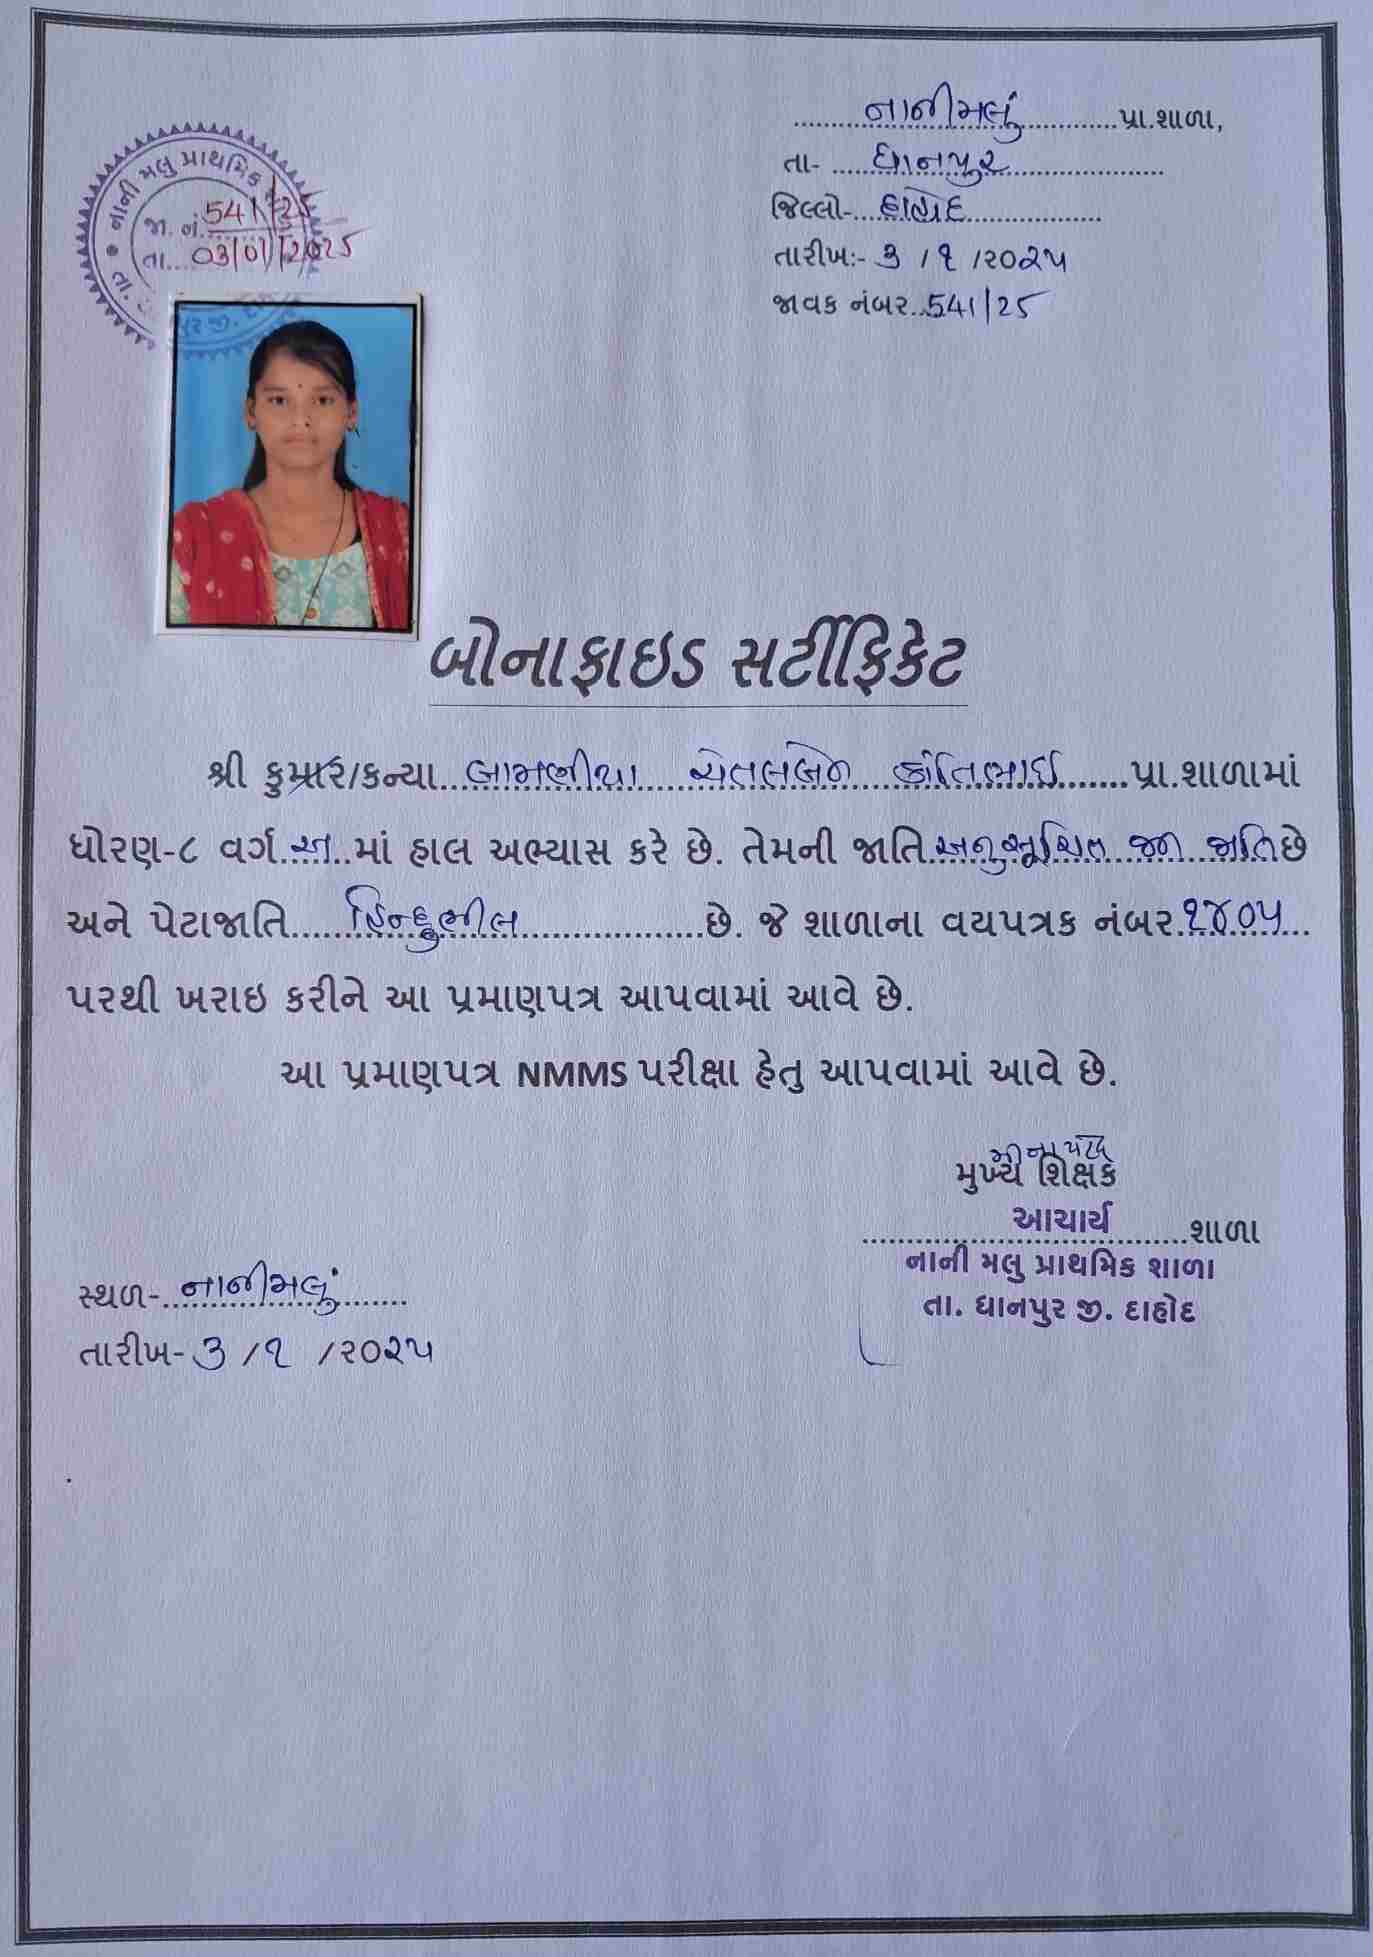 નાનીમલું પ્રા.શાળા,
તા- ધાનપુર
જિલ્લો- દાહોદ
તારીખ:- ૩ / ૧ /૨૦૨૫
જાવક નંબર..541/25
નાની મલુ પ્રાથમિક
જા. નં. 541/25
તા. 03/01/2025
બોનાફાઇડ સર્ટીફિકેટ
શ્રી કુમાર/કન્યા બામણીયા કાંતિભાઈ પ્રા.શાળામાં
ધોરણ-૮ વર્ગ અ માં હાલ અભ્યાસ કરે છે. તેમની જાતિ અનુસૂચિત જન જાતિ છે
અને પેટાજાતિ હિન્દુભીલ છે. જે શાળાના વયપત્રક નંબર ૧૪૦૫
પરથી ખરાઇ કરીને આ પ્રમાણપત્ર આપવામાં આવે છે.
આ પ્રમાણપત્ર NMMS પરીક્ષા હેતુ આપવામાં આવે છે.
મુખ્ય શિક્ષક
આચાર્ય શાળા
નાની મલુ પ્રાથમિક શાળા
તા. ધાનપુર જી. દાહોદ
સ્થળ- નાનીમલું
તારીખ- ૩ /૧ /૨૦૨૫